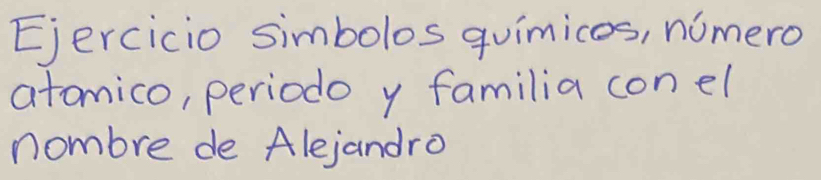 Ejercicio simbolos químicos, número
atomico, periodo y familia con el
nombre de Alejandro